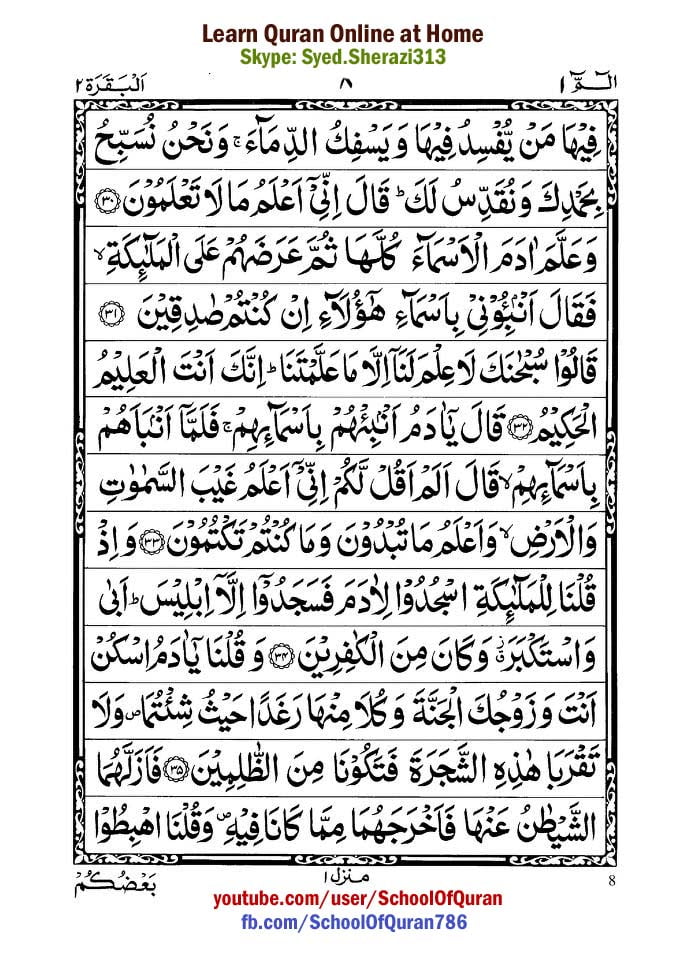 Learn Quran Online at Home
Skype: Syed.Sherazi313
الٓمّٓ ١ ٨ اَلْبَقَرَة ٢
فِيْهَا مَنْ يُّفْسِدُ فِيْهَا وَيَسْفِكُ الدِّمَآءَ ۚ وَنَحْنُ نُسَبِّحُ
بِحَمْدِكَ وَنُقَدِّسُ لَكَ ؕ قَالَ اِنِّىْٓ اَعْلَمُ مَا لَا تَعْلَمُوْنَ ﴿۳۰﴾
وَعَلَّمَ اٰدَمَ الْاَسْمَآءَ كُلَّهَا ثُمَّ عَرَضَهُمْ عَلَى الْمَلٰٓئِكَةِ ۙ
فَقَالَ اَنْۢبِئُوْنِىْ بِاَسْمَآءِ هٰٓؤُلَآءِ اِنْ كُنْتُمْ صٰدِقِيْنَ ﴿۳۱﴾
قَالُوْا سُبْحٰنَكَ لَا عِلْمَ لَنَآ اِلَّا مَا عَلَّمْتَنَا ؕ اِنَّكَ اَنْتَ الْعَلِيْمُ
الْحَكِيْمُ ﴿۳۲﴾ قَالَ يٰٓاٰدَمُ اَنْۢبِئْهُمْ بِاَسْمَآئِهِمْ ۚ فَلَمَّآ اَنْۢبَاَهُمْ
بِاَسْمَآئِهِمْ ۙ قَالَ اَلَمْ اَقُلْ لَّكُمْ اِنِّىْٓ اَعْلَمُ غَيْبَ السَّمٰوٰتِ
وَالْاَرْضِ ۙ وَاَعْلَمُ مَا تُبْدُوْنَ وَمَا كُنْتُمْ تَكْتُمُوْنَ ﴿۳۳﴾ وَاِذْ
قُلْنَا لِلْمَلٰٓئِكَةِ اسْجُدُوْا لِاٰدَمَ فَسَجَدُوْٓا اِلَّآ اِبْلِيْسَ ؕ اَبٰى
وَاسْتَكْبَرَ ۫ۗ وَكَانَ مِنَ الْكٰفِرِيْنَ ﴿۳۴﴾ وَقُلْنَا يٰٓاٰدَمُ اسْكُنْ
اَنْتَ وَزَوْجُكَ الْجَنَّةَ وَكُلَا مِنْهَا رَغَدًا حَيْثُ شِئْتُمَا ۪ وَلَا
تَقْرَبَا هٰذِهِ الشَّجَرَةَ فَتَكُوْنَا مِنَ الظّٰلِمِيْنَ ﴿۳۵﴾ فَاَزَلَّهُمَا
الشَّيْطٰنُ عَنْهَا فَاَخْرَجَهُمَا مِمَّا كَانَا فِيْهِ ۪ وَقُلْنَا اهْبِطُوْا
8 منزل ١ بَعْضُكُمْ
youtube.com/user/SchoolOfQuran
fb.com/SchoolOfQuran786